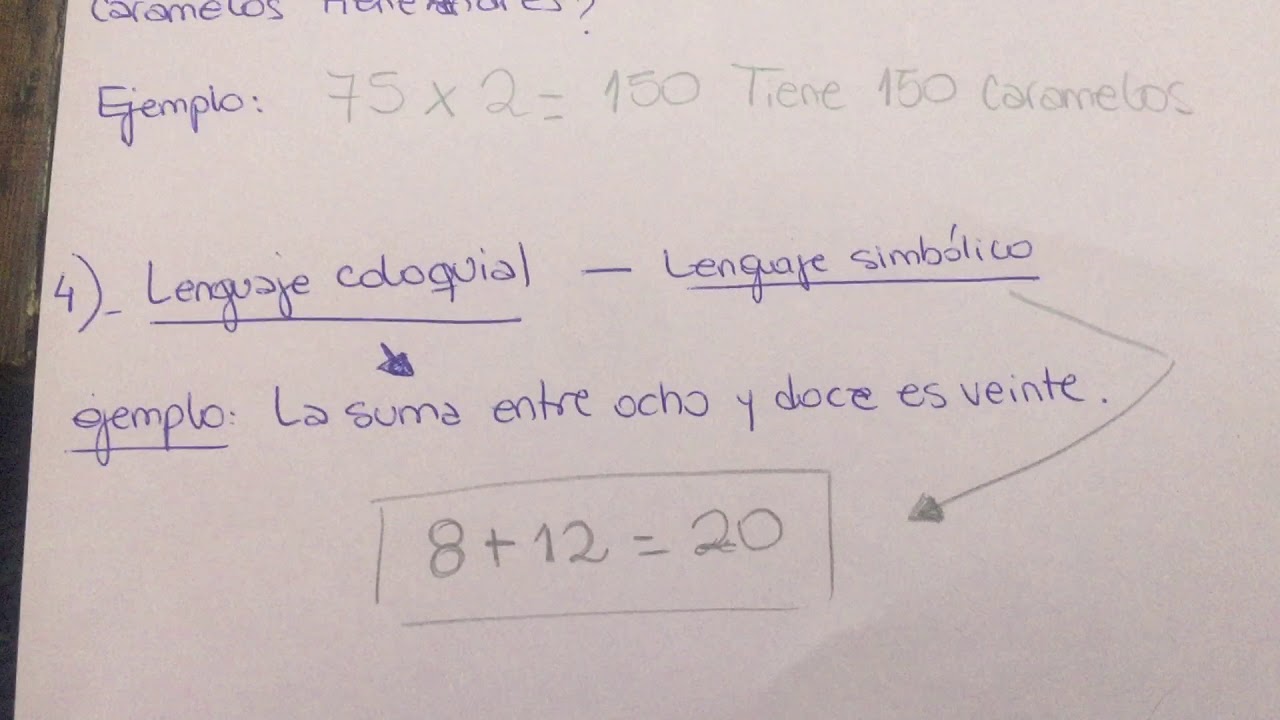 caramelos
Ejemplo: 75 x 2 = 150 Tiene 150 caramelos
4)- Lenguaje coloquial — Lenguaje simbólico
ejemplo: La suma entre ocho y doce es veinte.
8 + 12 = 20